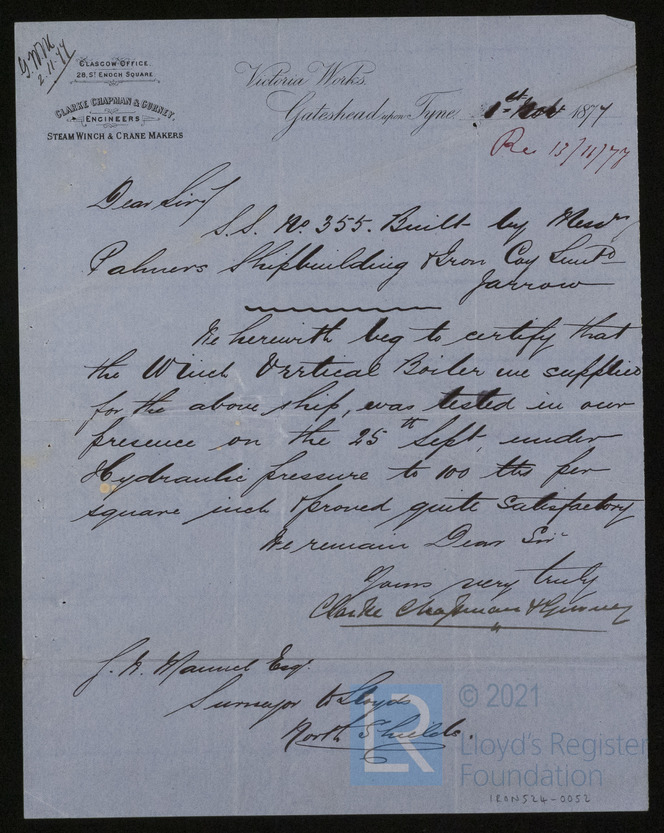 G.N.M
2.11.77
GLASGOW OFFICE.
28, ST ENOCH SQUARE
CLARKE CHAPMAN & GURNEY,
ENGINEERS
STEAM WINCH & CRANE MAKERS
Victoria Works,
Gateshead upon Tyne 1st Nov 1877
Re 13/11/77
Dear Sir
S.S. No 355. Built by Messrs
Palmers Shipbuilding & Iron Coy Limtd
Jarrow
We herewith beg to certify that
the Winch Vertical Boiler we supplied
for the above ship, was tested in our
presence on the 25th Sept, under
Hydraulic pressure to 100 lbs per
square inch & proved quite satisfactory
We remain Dear Sir
Yours very truly
Clarke Chapman & Gurney
Esqr
Surveyor to Lloyds
North Shields.
LR
© 2021
Lloyd's Register
Foundation
IRON524-0052